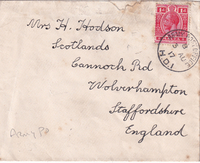 Mrs H. Hodson
Scotlands
Cannock Rd
Wolverhampton
Staffordshire
England